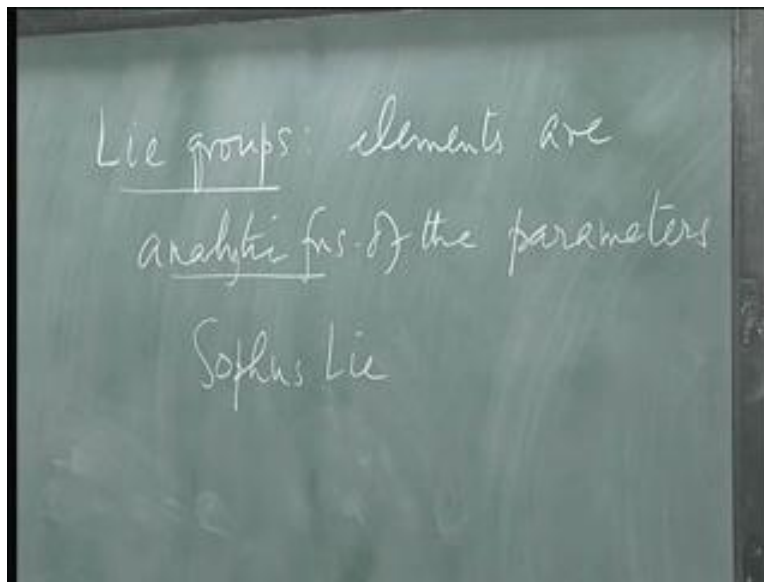 Lie groups: elements are
analytic fns. of the parameters
Sophus Lie